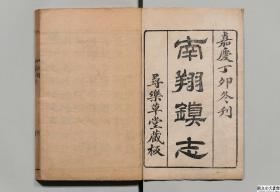 嘉慶丁卯冬刊
南翔鎮志
尋樂草堂藏板